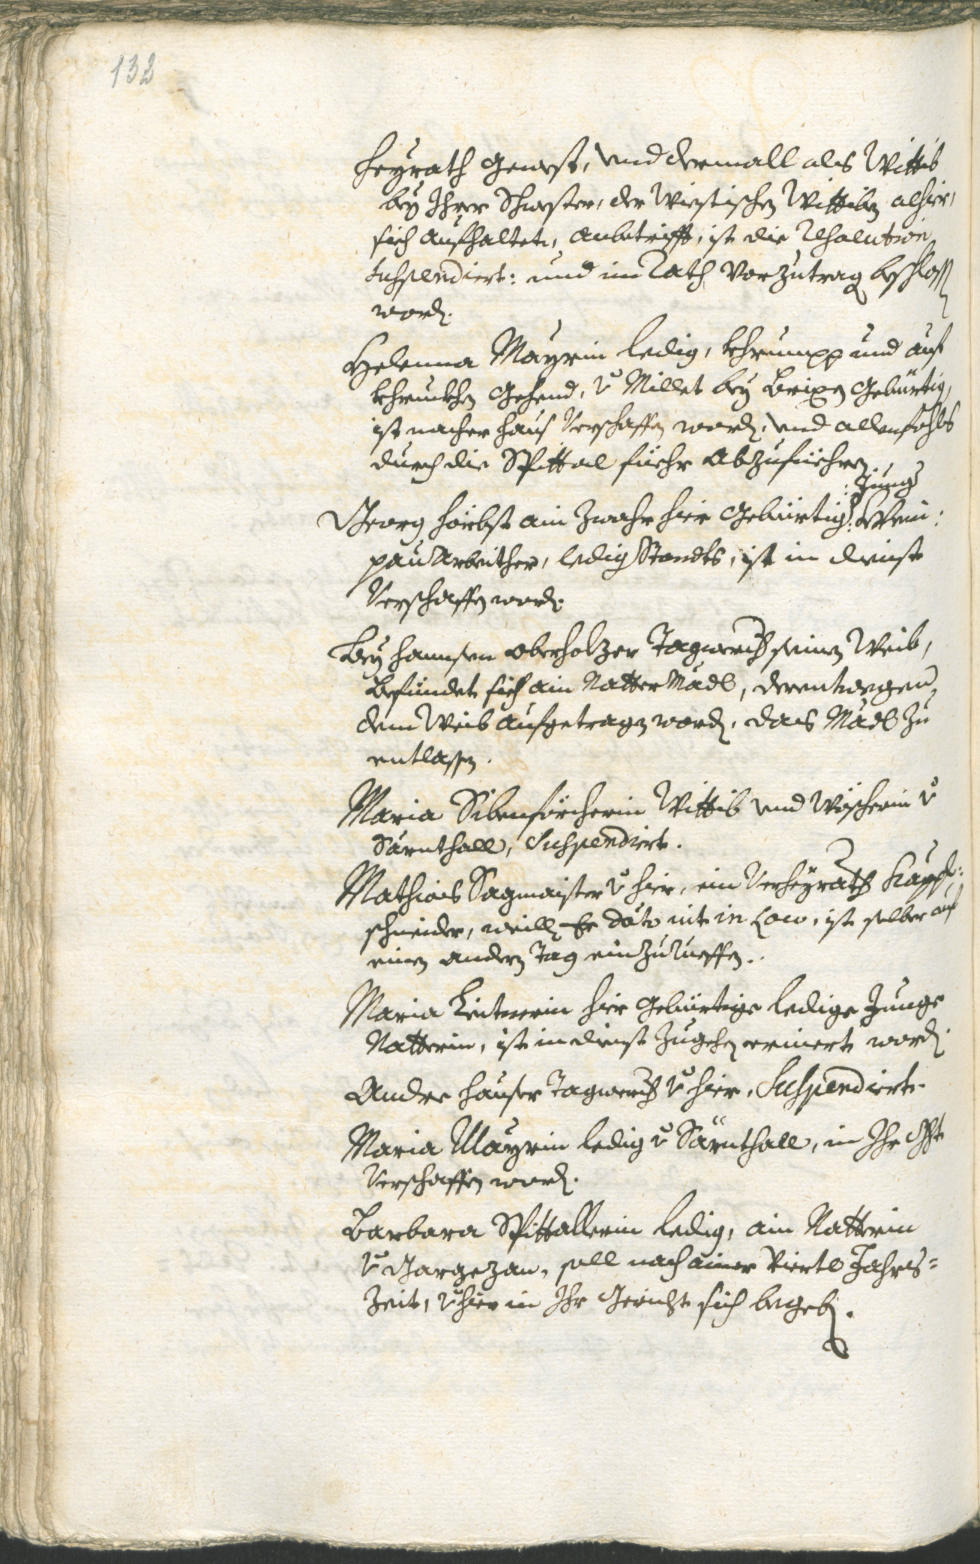 132
heyrath gewest, und dermall als Wittib
bey Ihrer Schwester, der Wiestischen Wittiben alhier,
sich aufhaltet, anbetrifft, ist die Resolution
suspendiert: und im Rath vorzutragen beschlossen
worden.
Helenna Mayrin ledig, khrumpp und auf
khruckhen gehend, v Millet bey Brixen gebürtig,
ist nacher haus verschaffen worden, und allenfahls
durch die Spittal fuehr abzufüehren
: Jung
Georg hörbst ain zwahr hier gebürtig: Wein:
pau Arbeither, ledig Standts, ist in dienst
verschaffen worden.
Bey hannsen oberholzer Tagwerch: seinen Weib,
befündet sich ain Natter Mädl, derentwegen
dem Weib aufgetragen worden, das Mädl zu
entlassen.
Maria Sibenförcherin Wittib und Wöscherin v
Särnthall, suspendiert.
Mathias Sagmaister v hier, ein verheyrath
schneider, weillen Er dato nit in Loco, ist selber auf
einen andern Tag einzuruffen.
Maria hier gebürtige ledige Junge
Natterin, ist in dienst zugehen erinert worden
Andre hauser Tagwerch: v hier, Suspendiert.
Maria Mayrin ledig v Särnthall, in Ihr
verschaffen worden.
Barbara Spittallerin ledig, ain Natterin
v Gargezan, soll nach ainer Viertl Jahrs=
Zeit, v hier in Ihr Gericht sich begeben.